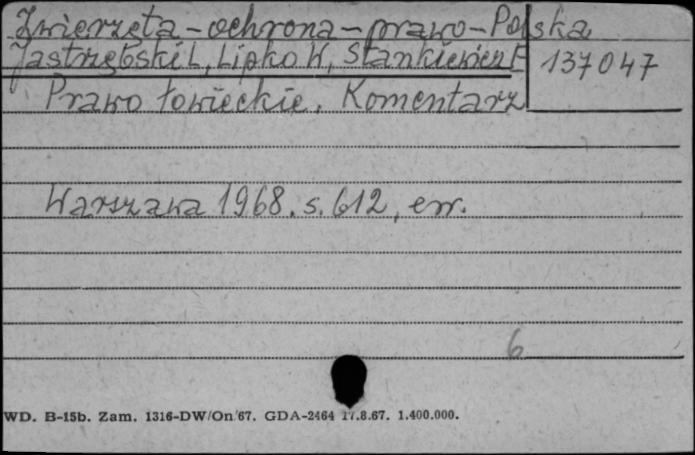 Zwierzęta - ochrona - prawo - Polska
Jastrzębski L, Lipko W, Stankiewicz E
137047
Prawo łowieckie. Komentarz
Warszawa 1968. s. 612, err.
6
WD. B-15b. Zam. 1316-DW/On/67. GDA-2464 17.8.67. 1.400.000.